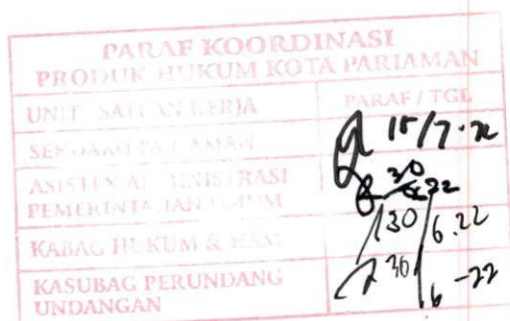 PARAF KOORDINASI
PRODUK HUKUM KOTA PARIAMAN
UNIT SATUAN KERJA PARAF / TGL
SEKDAKO PARIAMAN 15/7-22
ASISTEN ADMINISTRASI
PEMERINTAHAN UMUM 30/6 22
KABAG HUKUM & HAM 30/6.22
KASUBAG PERUNDANG
UNDANGAN 30/6-22